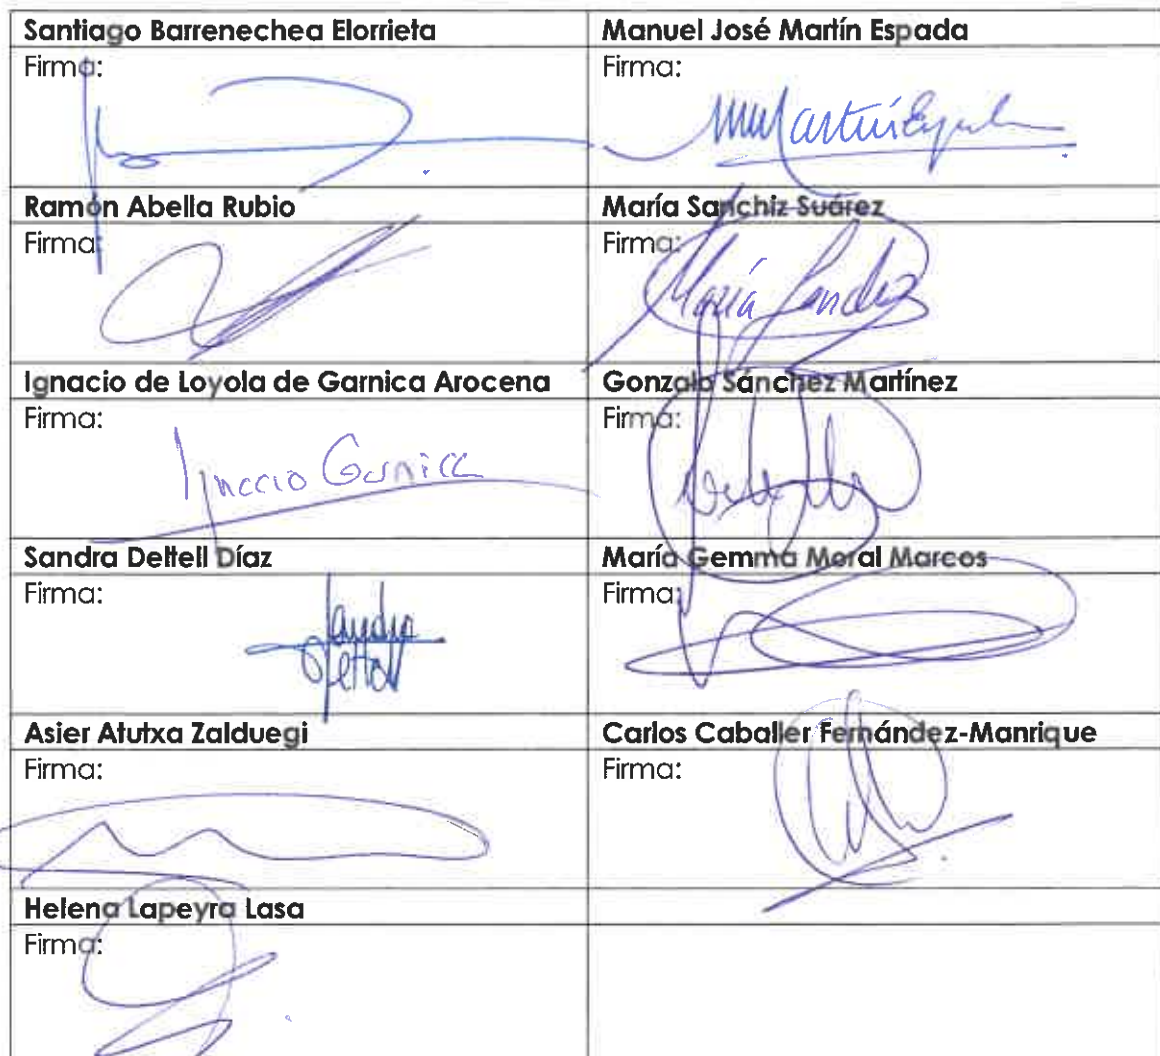 Santiago Barrenechea Elorrieta
Manuel José Martín Espada
Firma:
Firma:
MMartínEspada
Ramón Abella Rubio
María Sanchiz Suárez
Firma:
Firma:
María Sanchiz
Ignacio de Loyola de Garnica Arocena
Gonzalo Sánchez Martínez
Firma:
Firma:
Ignacio Garnica
Sandra Deltell Díaz
María Gemma Moral Marcos
Firma:
Firma:
Sandra
Deltell
Asier Atutxa Zalduegi
Carlos Caballer Fernández-Manrique
Firma:
Firma:
Helena Lapeyra Lasa
Firma: